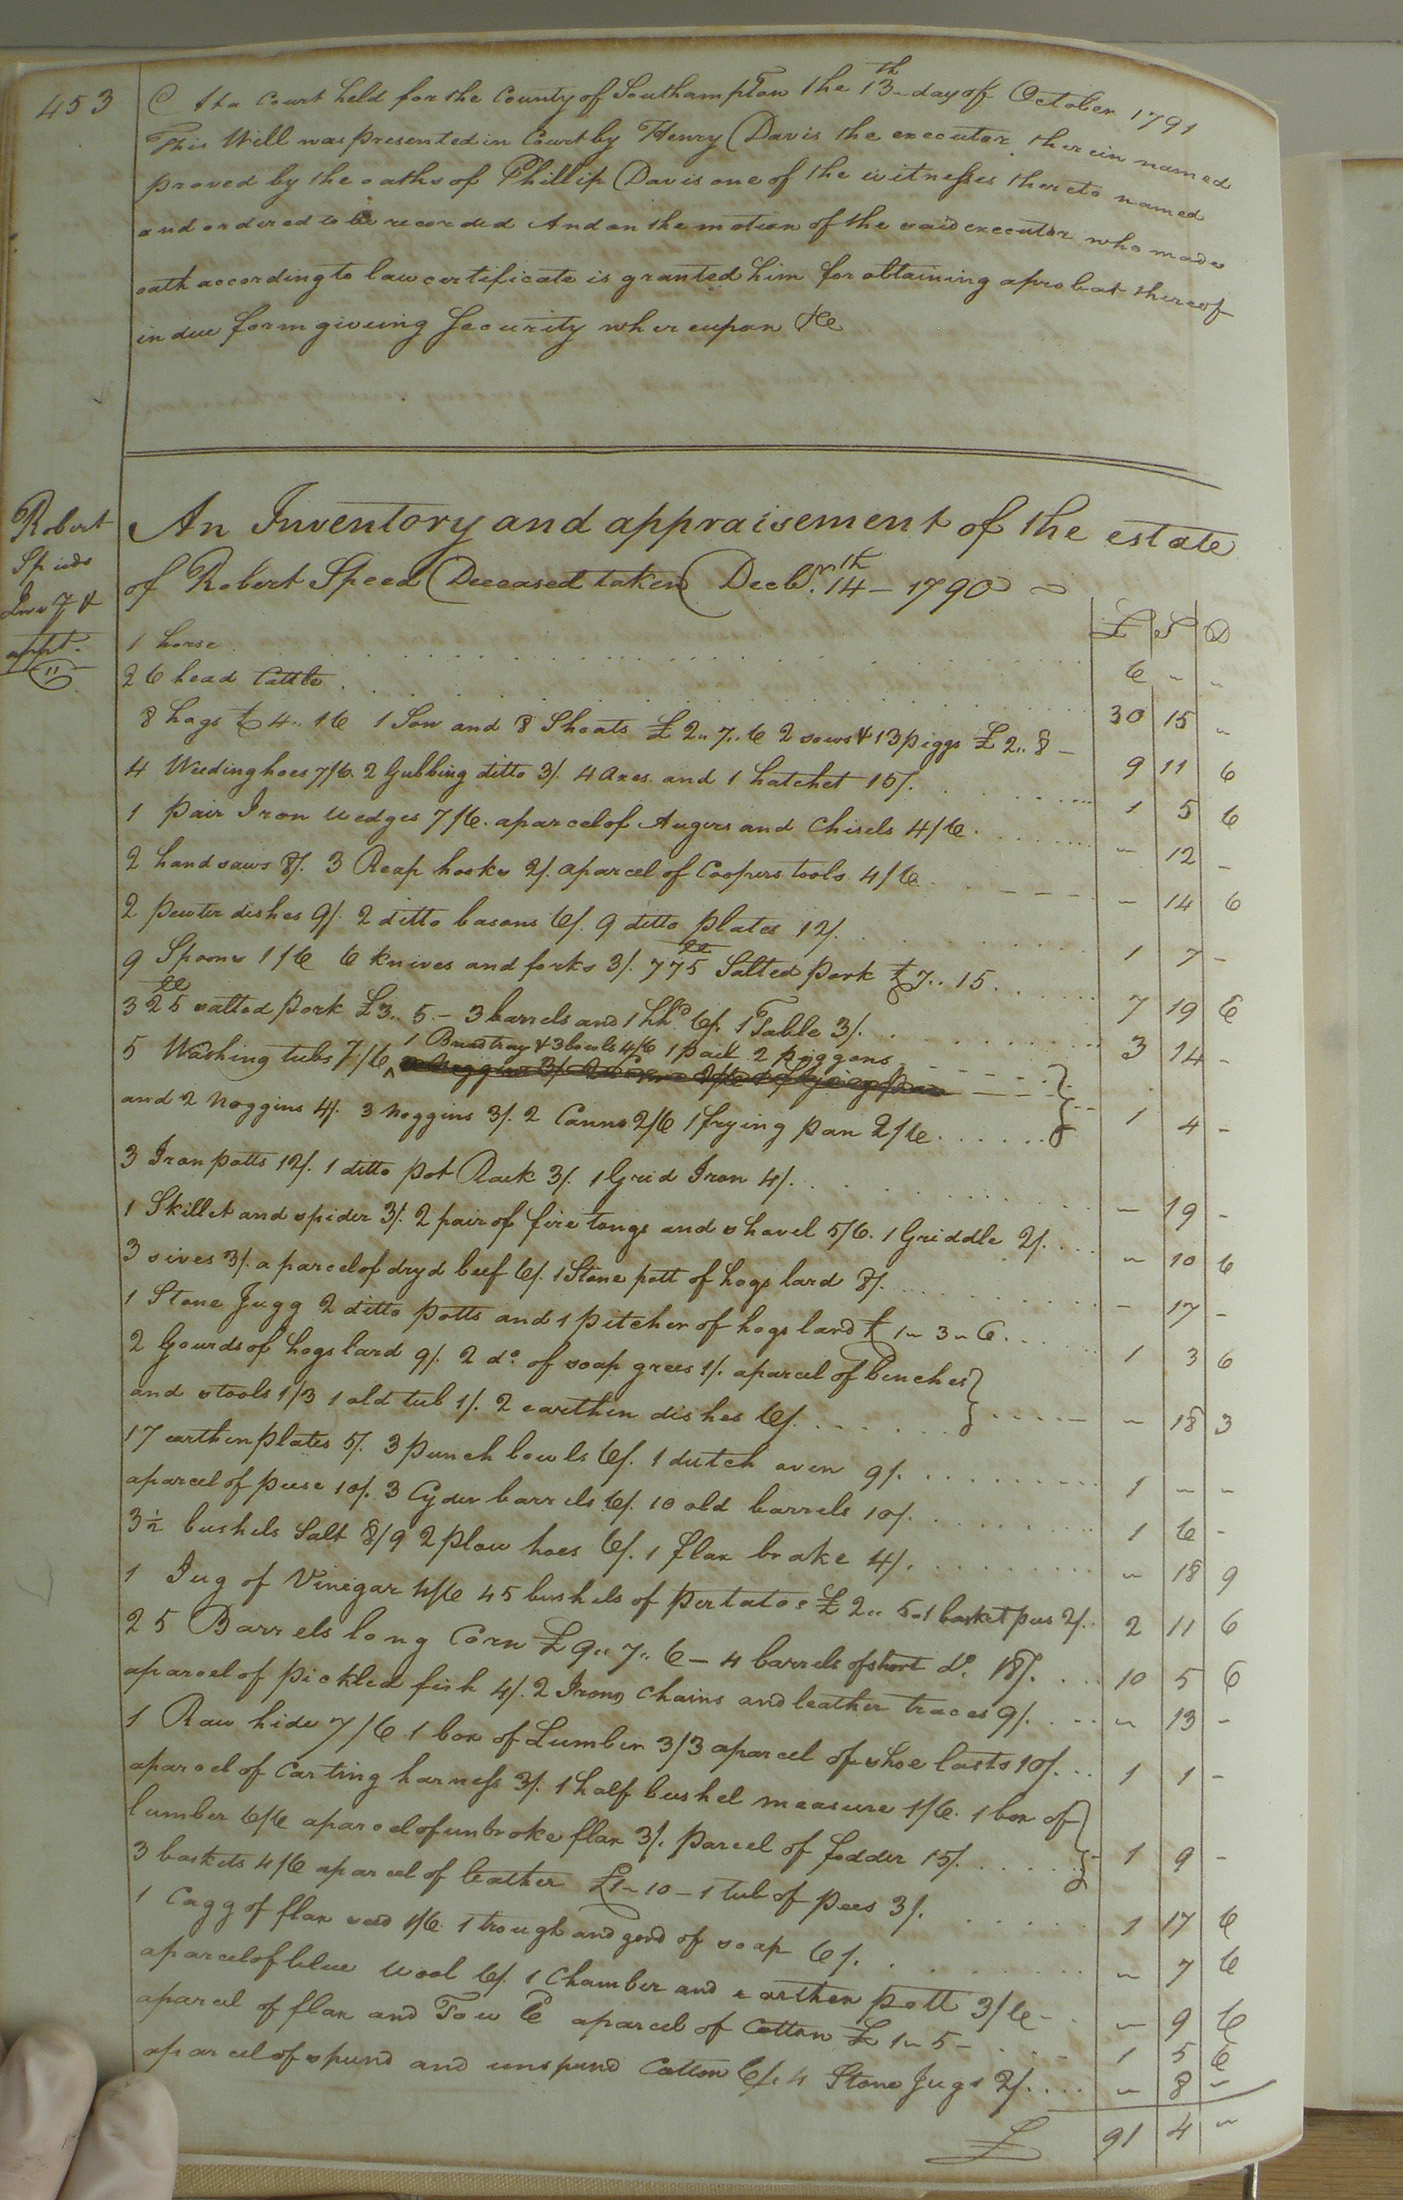 453
At a Court held for the County of Southampton the 13th day of October 1791
This Will was presented in Court by Henry Davis the executor therein named
proved by the oaths of Phillip Davis one of the witnesses thereto named
and ordered to be recorded And on the motion of the said executor who made
oath according to law certificate is granted him for obtaining a probat thereof
in due form giveing Security whereupon &c
Robert
Speeds
Invy &
appt.
An Inventory and appraisement of the estate
of Robert Speed Deceased taken Decbr. 14th - 1790
£ S D
1 horse 6 " "
26 head Cattle 30 15 "
8 hogs £ 4.. 16 1 Sow and 8 Shoats £ 2.. 7.. 6 2 sows & 13 piggs £ 2.. 8 - 9 11 6
4 Weeding hoes 7/6. 2 Gubbing ditto 3/. 4 axes and 1 hatchet 15/. 1 5 6
1 pair Iron wedges 7/6. a parcel of Augers and Chisels 4/6. - 12 -
2 hand saws 8/. 3 Reap hooks 2/. a parcel of Coopers tools 4/6 - 14 6
2 pewter dishes 9/. 2 ditto basons 6/. 9 ditto plates 12/. 1 7 -
9 Spoons 1/6 6 knives and forks 3/. 775 ll Salted pork £ 7.. 15. 7 19 6
325 ll salted pork £3.. 5. - 3 barrels and 1 hhd. 6/. 1 Table 3/. 3 14 -
5 Washing tubs 7/6 1 Bread tray & 3 bowls 4/6 1 pail 2 piggons
and 2 noggins 4/. 3 noggins 3/. 2 Canns 2/6 1 frying pan 2/6 1 4 -
3 Iron potts 12/. 1 ditto pot Rack 3/. 1 Grid Iron 4/. - 19 -
1 Skillet and spider 3/. 2 pair of fire tongs and shovel 5/6. 1 Griddle 2/. - 10 6
3 sives 3/. a parcel of dryd beef 6/. 1 Stone pott of hogs lard 8/. - 17 -
1 Stone Jugg 2 ditto potts and 1 pitcher of hogs lard £ 1 " 3 " 6. 1 3 6
2 Gourds of hogs lard 9/. 2 do. of soap grees 1/. a parcel of benches
and stools 1/3 1 old tub 1/. 2 earthen dishes 6/. - 18 3
17 earthen plates 5/. 3 punch bowls 6/. 1 dutch oven 9/. 1 - -
a parcel of peese 10/. 3 Cyder barrels 6/. 10 old barrels 10/. 1 6 -
3½ bushels Salt 8/9 2 plow hoes 6/. 1 flax brake 4/. - 18 9
1 Jug of Vinegar 4/6 45 bushels of pertatoe £ 2.. 5. 1 basket peas 2/. 2 11 6
25 Barrels long Corn £ 9.. 7.. 6 - 4 barrels of short do. 18/. 10 5 6
a parcel of pickled fish 4/. 2 Irons Chains and leather traces 9/. - 13 -
1 Raw hide 7/6 1 box of Lumber 3/3 a parcel of shoe lasts 10/. 1 1 -
a parcel of Carting harness 3/. 1 half bushel measure 1/6. 1 box of
lumber 6/6 a parcel of unbroke flax 3/. parcel of fodder 15/. 1 9 -
3 baskets 4/6 a parcel of leather £1 " 10 - 1 tub of pees 3/. 1 17 6
1 Cagg of flax seed 1/6. 1 trough and gord of soap 6/. - 7 6
a parcel of blue wool 6/. 1 Chamber and earthen pott 3/6 - - 9 6
a parcel of flax and Tow 6 a parcel of Cotton £ 1 " 5 - 1 5 6
a parcel of spund and unspund Cotton 6/. 4 Stone Jugs 2/. - 8 -
£ 91 4 -